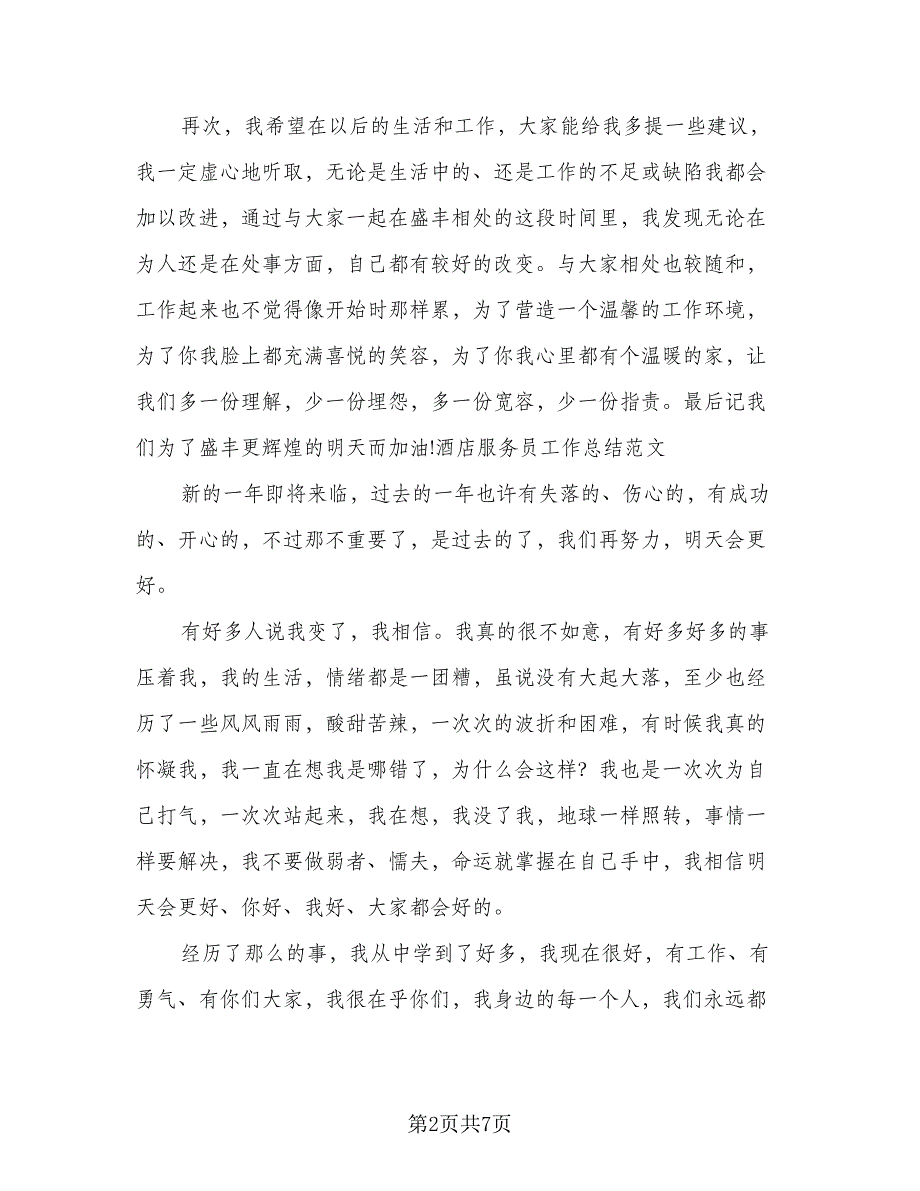 再次，我希望在以后的生活和工作，大家能给我多提一些建议，
我一定虚心地听取，无论是生活中的、还是工作的不足或缺陷我都会
加以改进，通过与大家一起在盛丰相处的这段时间里，我发现无论在
为人还是在处事方面，自己都有较好的改变。与大家相处也较随和，
工作起来也不觉得像开始时那样累，为了营造一个温馨的工作环境，
为了你我脸上都充满喜悦的笑容，为了你我心里都有个温暖的家，让
我们多一份理解，少一份埋怨，多一份宽容，少一份指责。最后记我
们为了盛丰更辉煌的明天而加油!酒店服务员工作总结范文
新的一年即将来临，过去的一年也许有失落的、伤心的，有成功
的、开心的，不过那不重要了，是过去的了，我们再努力，明天会更
好。
有好多人说我变了，我相信。我真的很不如意，有好多好多的事
压着我，我的生活，情绪都是一团糟，虽说没有大起大落，至少也经
历了一些风风雨雨，酸甜苦辣，一次次的波折和困难，有时候我真的
怀凝我，我一直在想我是哪错了，为什么会这样？我也是一次次为自
己打气，一次次站起来，我在想，我没了我，地球一样照转，事情一
样要解决，我不要做弱者、懦夫，命运就掌握在自己手中，我相信明
天会更好、你好、我好、大家都会好的。
经历了那么的事，我从中学到了好多，我现在很好，有工作、有
勇气、有你们大家，我很在乎你们，我身边的每一个人，我们永远都
第2页共7页